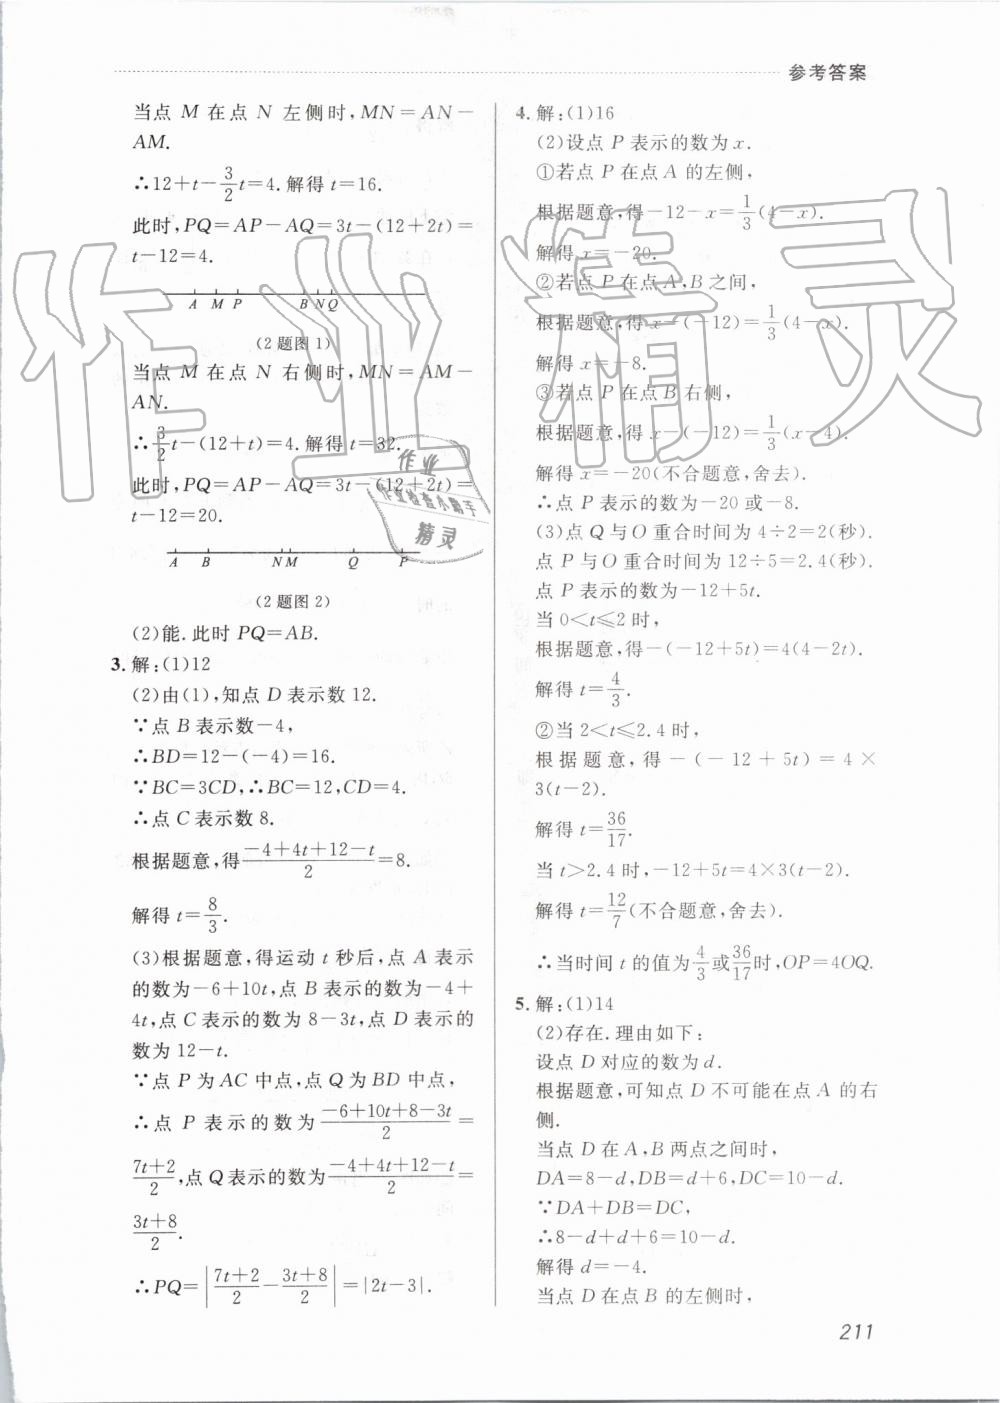 参考答案
当点 M 在点 N 左侧时,MN=AN-
AM.
∴12+t-3/2t=4.解得t=16.
此时,PQ=AP-AQ=3t-(12+2t)=
t-12=4.
A M P B N Q
(2题图1)
当点 M 在点 N 右侧时,MN=AM-
AN.
∴3/2t-(12+t)=4.解得t=32.
此时,PQ=AP-AQ=3t-(12+2t)=
t-12=20.
A B N M Q P
(2题图2)
(2)能.此时PQ=AB.
3.解:(1)12
(2)由(1),知点 D 表示数12.
∵点 B 表示数-4,
∴BD=12-(-4)=16.
∵BC=3CD,∴BC=12,CD=4.
∴点 C 表示数8.
根据题意,得(-4+4t+12-t)/2=8.
解得t=8/3.
(3)根据题意,得运动 t 秒后,点 A 表示
的数为-6+10t,点 B 表示的数为-4+
4t,点 C 表示的数为 8-3t,点 D 表示的
数为12-t.
∵点 P 为 AC 中点,点 Q 为 BD 中点,
∴点 P 表示的数为(-6+10t+8-3t)/2=
(7t+2)/2,点 Q 表示的数为(-4+4t+12-t)/2=
(3t+8)/2.
∴PQ=|(7t+2)/2-(3t+8)/2|=|2t-3|.
4.解:(1)16
(2)设点 P 表示的数为x.
①若点 P 在点 A 的左侧,
根据题意,得-12-x=1/3(4-x).
解得x=-20.
②若点 P 在点 A,B 之间,
根据题意,得x-(-12)=1/3(4-x).
解得x=-8.
③若点 P 在点 B 右侧,
根据题意,得x-(-12)=1/3(x-4).
解得x=-20(不合题意,舍去).
∴点 P 表示的数为-20或-8.
(3)点 Q 与 O 重合时间为4÷2=2(秒).
点 P 与 O 重合时间为12÷5=2.4(秒).
点 P 表示的数为-12+5t.
当0<t≤2时,
根据题意,得-(-12+5t)=4(4-2t).
解得t=4/3.
②当2<t≤2.4时,
根据题意,得-(-12+5t)=4×
3(t-2).
解得t=36/17.
当t>2.4时,-12+5t=4×3(t-2).
解得t=12/7(不合题意,舍去).
∴当时间 t 的值为4/3或36/17时,OP=4OQ.
5.解:(1)14
(2)存在.理由如下:
设点 D 对应的数为d.
根据题意,可知点 D 不可能在点 A 的右
侧.
当点 D 在 A,B 两点之间时,
DA=8-d,DB=d+6,DC=10-d.
∵DA+DB=DC,
∴8-d+d+6=10-d.
解得d=-4.
当点 D 在点 B 的左侧时,
211
作业精灵
作业
作业检查小助手
精灵